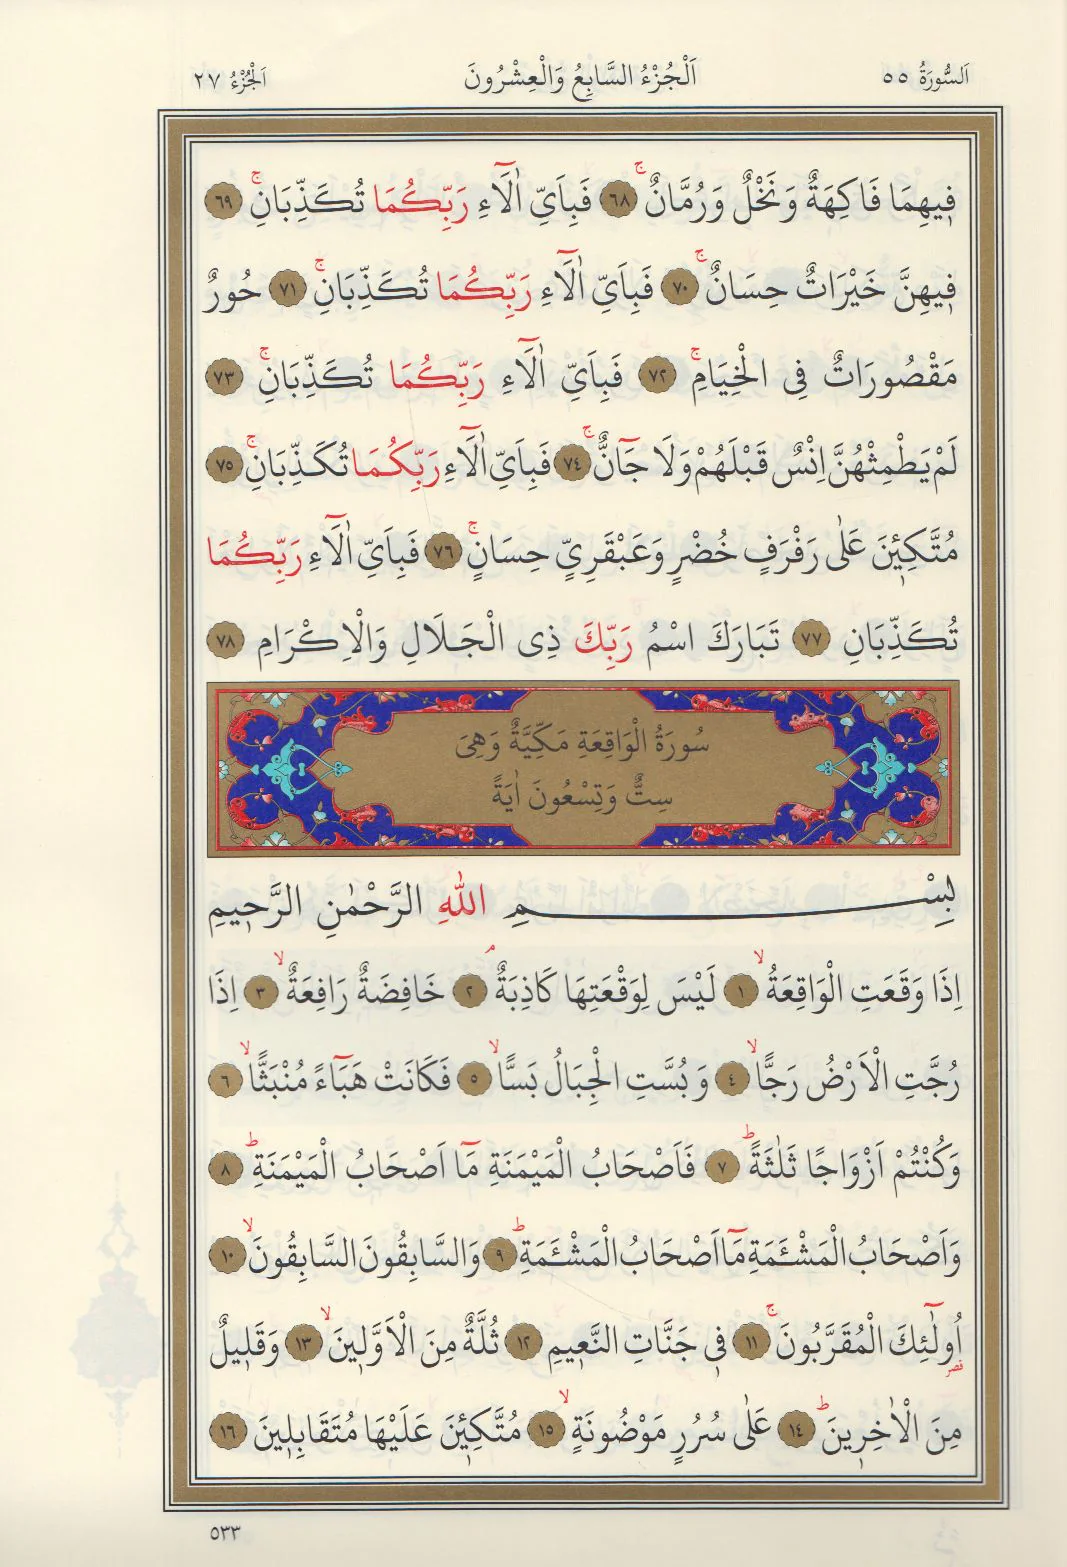 اَلسُّورَةُ ٥٥
اَلْجُزْءُ السَّابِعُ وَالْعِشْرُونَ
اَلْجُزْءُ ٢٧
فِيهِمَا فَاكِهَةٌ وَنَخْلٌ وَرُمَّانٌۚ ٦٨ فَبِاَيِّ اٰلَٓاءِ رَبِّكُمَا تُكَذِّبَانِۚ ٦٩
فِيهِنَّ خَيْرَاتٌ حِسَانٌۚ ٧٠ فَبِاَيِّ اٰلَٓاءِ رَبِّكُمَا تُكَذِّبَانِۚ ٧١ حُورٌ
مَقْصُورَاتٌ فِى الْخِيَامِۚ ٧٢ فَبِاَيِّ اٰلَٓاءِ رَبِّكُمَا تُكَذِّبَانِۚ ٧٣
لَمْ يَطْمِثْهُنَّ اِنْسٌ قَبْلَهُمْ وَلَا جَٓانٌّۚ ٧٤ فَبِاَيِّ اٰلَٓاءِ رَبِّكُمَا تُكَذِّبَانِۚ ٧٥
مُتَّكِـِٔينَ عَلٰى رَفْرَفٍ خُضْرٍ وَعَبْقَرِيٍّ حِسَانٍۚ ٧٦ فَبِاَيِّ اٰلَٓاءِ رَبِّكُمَا
تُكَذِّبَانِ ٧٧ تَبَارَكَ اسْمُ رَبِّكَ ذِى الْجَلَالِ وَالْاِكْرَامِ ٧٨
سُورَةُ الْوَاقِعَةِ مَكِّيَّةٌ وَهِىَ
سِتٌّ وَتِسْعُونَ اٰيَةً
بِسْمِ اللّٰهِ الرَّحْمٰنِ الرَّحِيمِ
اِذَا وَقَعَتِ الْوَاقِعَةُۙ ١ لَيْسَ لِوَقْعَتِهَا كَاذِبَةٌۢ ٢ خَافِضَةٌ رَافِعَةٌۙ ٣ اِذَا
رُجَّتِ الْاَرْضُ رَجًّاۙ ٤ وَبُسَّتِ الْجِبَالُ بَسًّاۙ ٥ فَكَانَتْ هَبَٓاءً مُنْبَثًّاۙ ٦
وَكُنْتُمْ اَزْوَاجًا ثَلٰثَةًۜ ٧ فَاَصْحَابُ الْمَيْمَنَةِ مَٓا اَصْحَابُ الْمَيْمَنَةِۜ ٨
وَاَصْحَابُ الْمَشْـَٔمَةِ مَٓا اَصْحَابُ الْمَشْـَٔمَةِۜ ٩ وَالسَّابِقُونَ السَّابِقُونَۙ ١٠
اُو۬لٰٓئِكَ الْمُقَرَّبُونَۚ ١١ فِى جَنَّاتِ النَّعِيمِ ١٢ ثُلَّةٌ مِنَ الْاَوَّلِينَۙ ١٣ وَقَلِيلٌ
مِنَ الْاٰخِرِينَۜ ١٤ عَلٰى سُرُرٍ مَوْضُونَةٍۙ ١٥ مُتَّكِـِٔينَ عَلَيْهَا مُتَقَابِلِينَ ١٦
٥٣٣